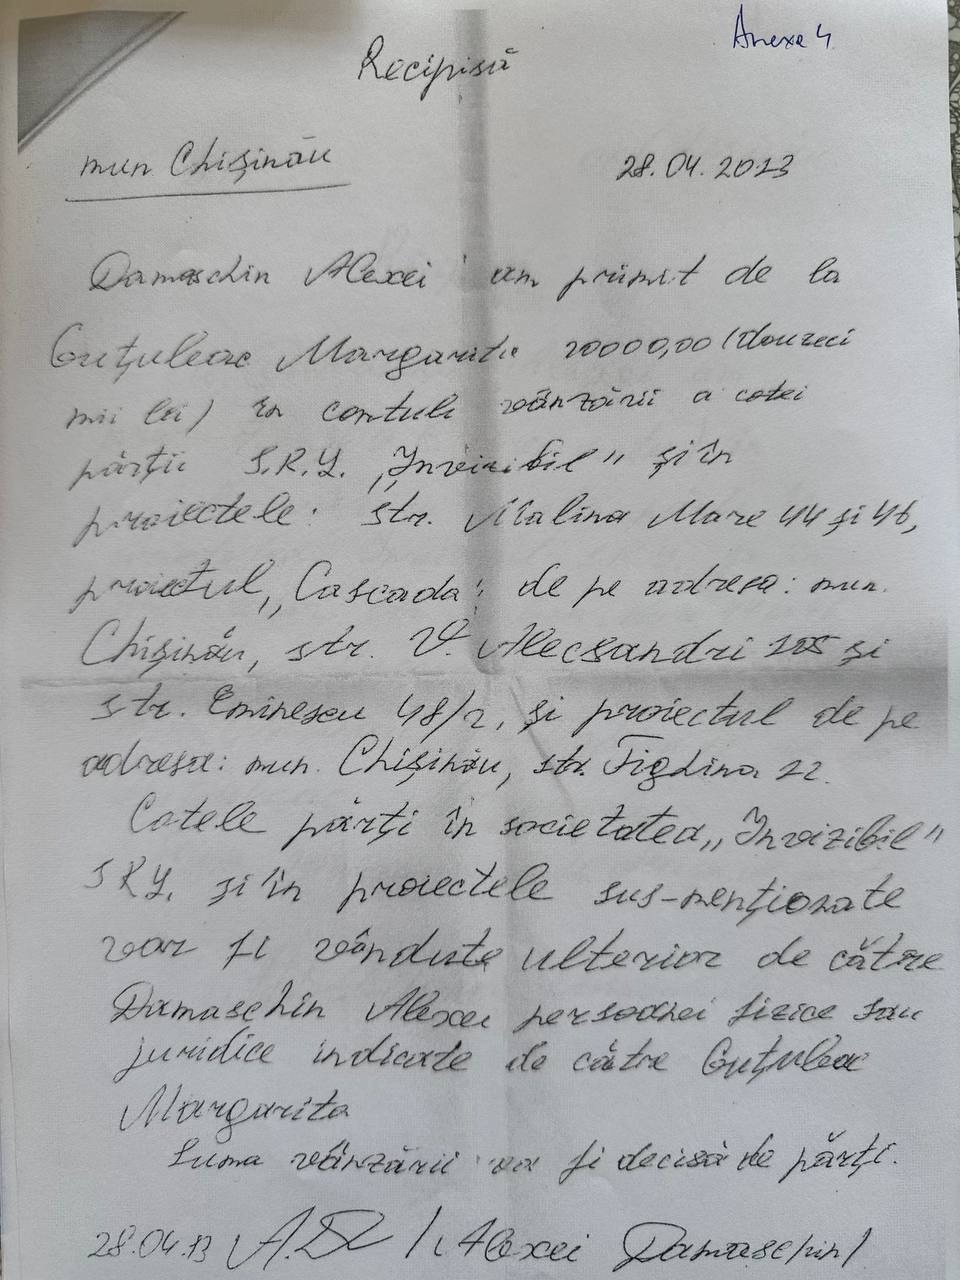 Anexa 4
Recipisă
mun Chișinău 28.04.2013
Damaschin Alexei am primit de la
Guțuleac Margarita 20000,00 (douzeci
mii lei) în contul vânzării a cotei
părții S.R.L. „Invizibil" și în
proiectele: str. Malina Mare 44 și 46,
proiectul „Cascada" de pe adresa: mun.
Chișinău, str. V. Alecsandri 105 și
str. Eminescu 48/2, și proiectul de pe
adresa: mun. Chișinău, str. Tighina 22.
Cotele părți în societatea „Invizibil"
SRL. și în proiectele sus-menționate
vor fi vândute ulterior de către
Damaschin Alexei persoanei fizice sau
juridice indicate de către Guțuleac
Margarita
Suma vânzării va fi decisă de părți.
28.04.13 /Alexei Damaschin/